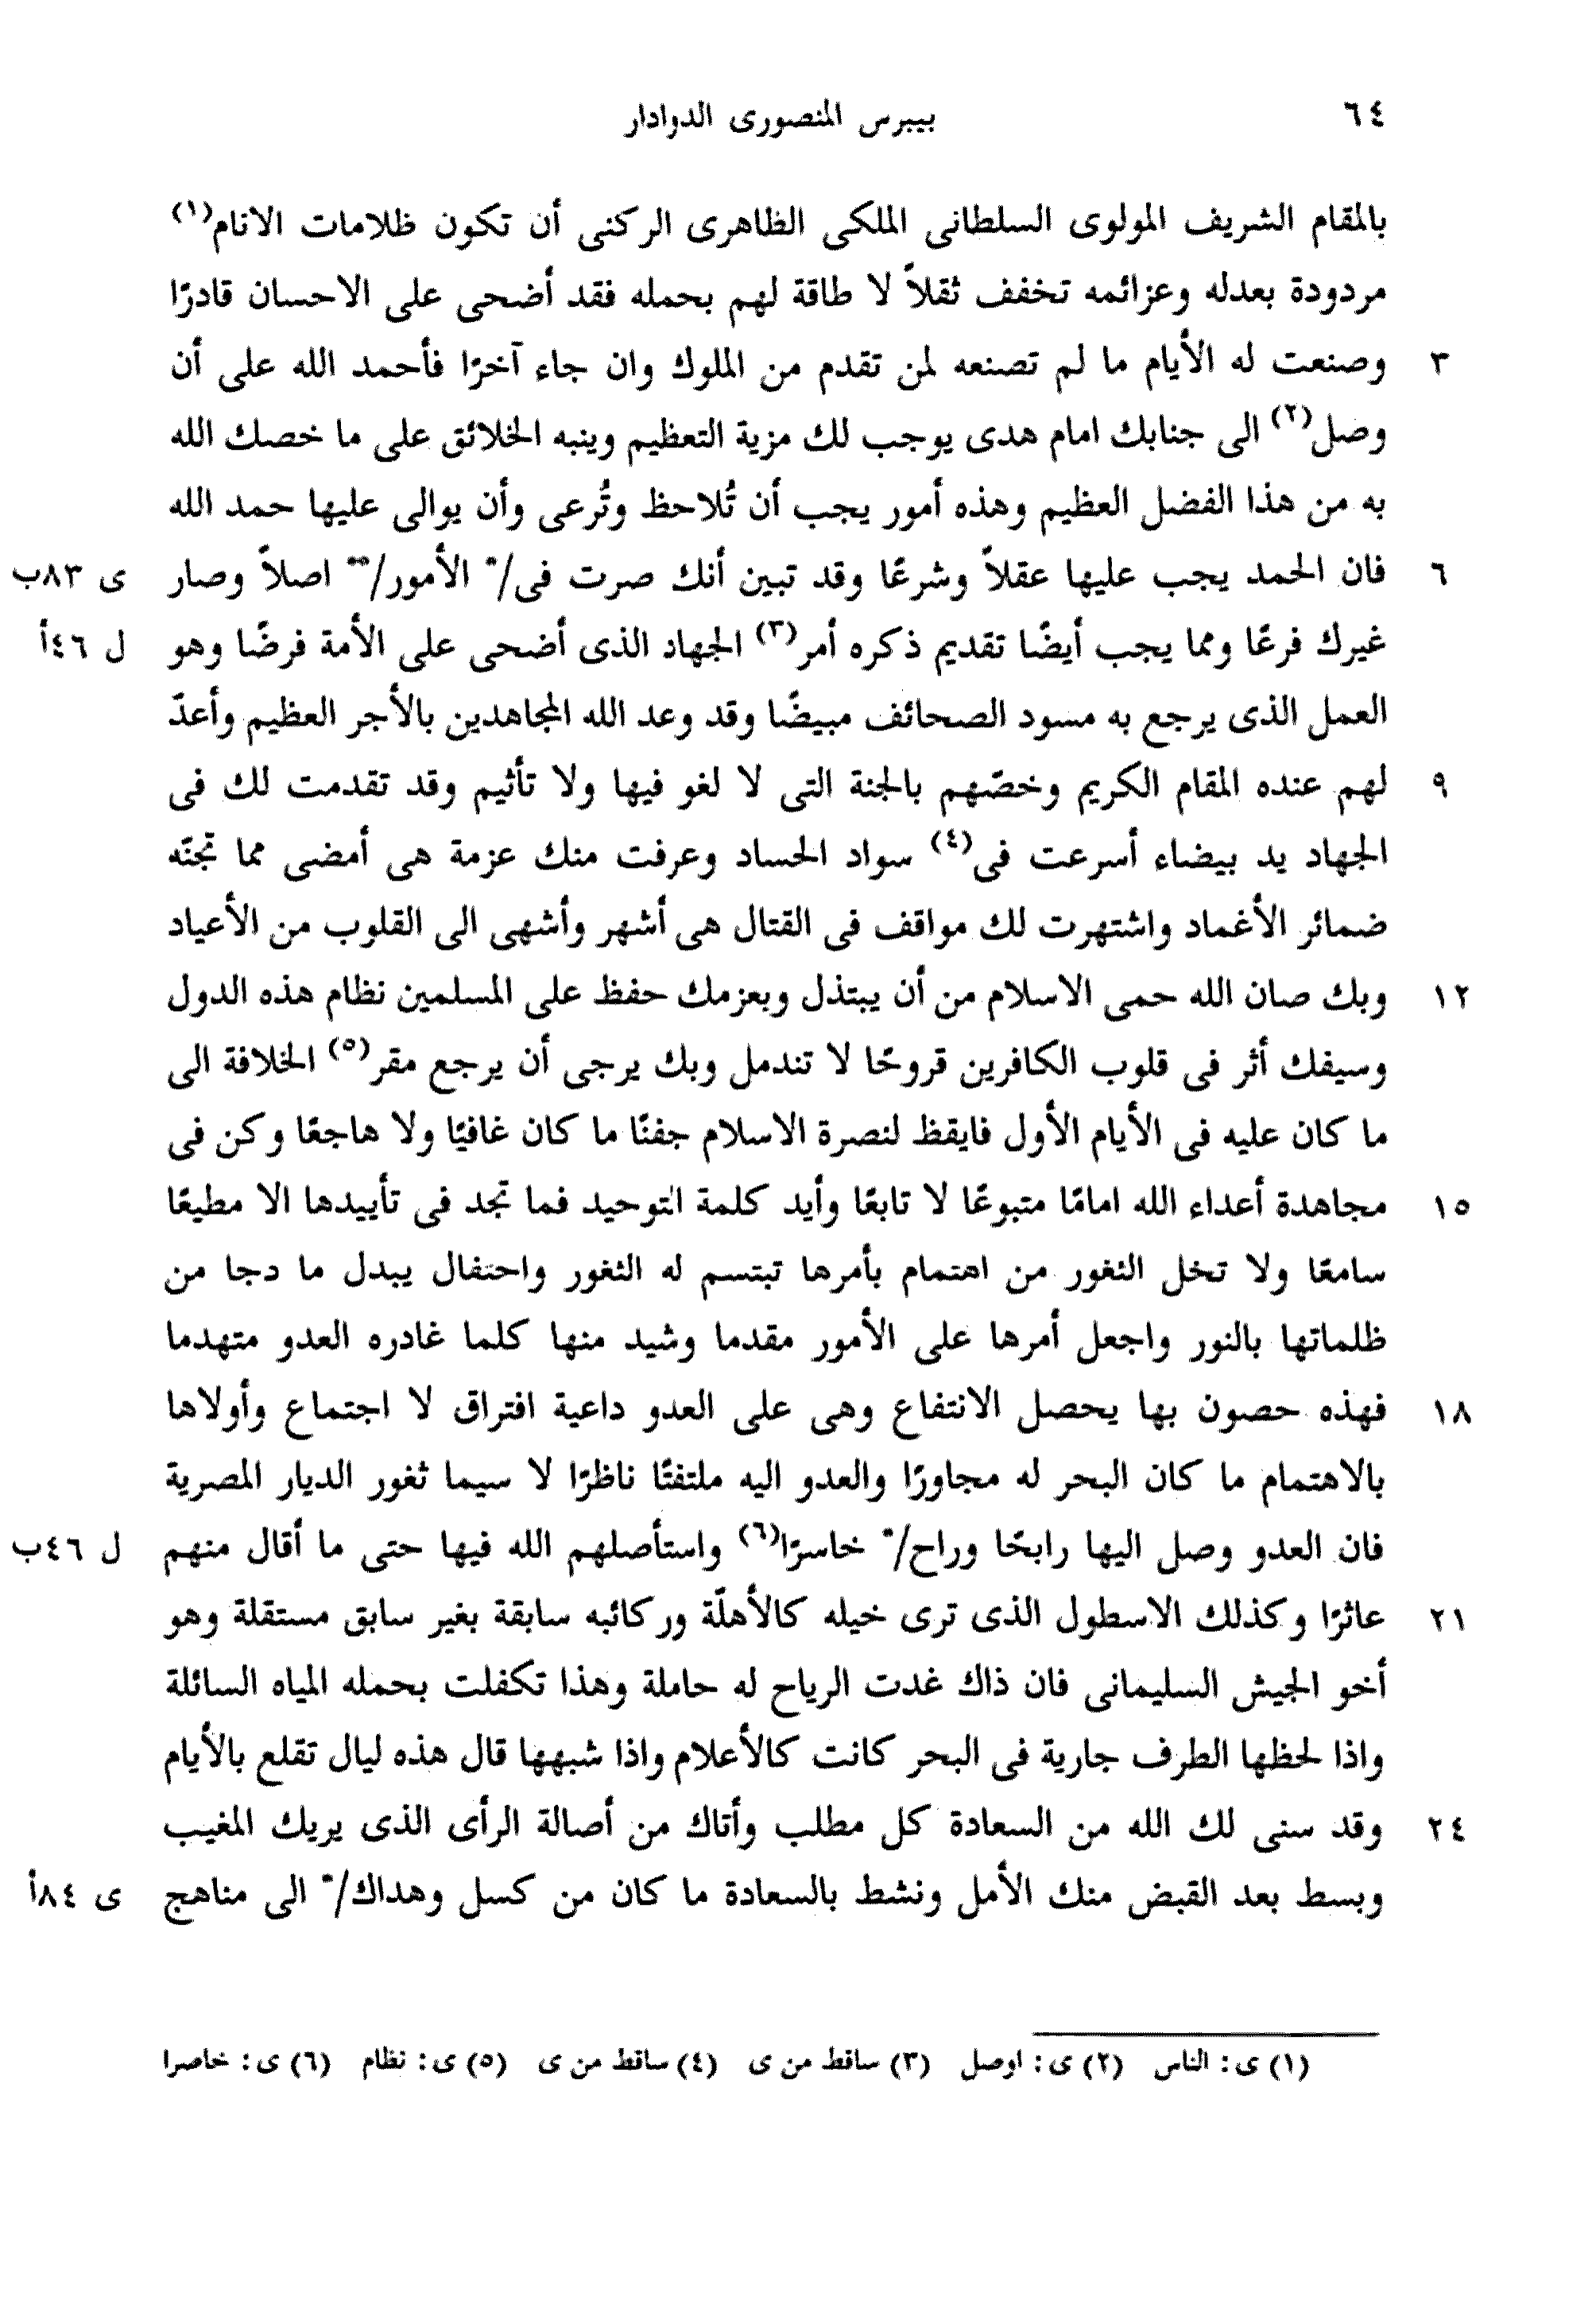 ٦٤ بيبرس المنصورى الدوادار
بالمقام الشريف المولوى السلطانى الملكى الظاهرى الركنى أن تكون ظلامات الانام(١)
مردودة بعدله وعزائمه تخفف ثقلاً لا طاقة لهم بحمله فقد أضحى على الاحسان قادرًا
٣ وصنعت له الأيام ما لم تصنعه لمن تقدم من الملوك وان جاء آخرًا فأحمد الله على أن
وصل(٢) الى جنابك امام هدى يوجب لك مزية التعظيم وينبه الخلائق على ما خصك الله
به من هذا الفضل العظيم وهذه أمور يجب أن تُلاحظ وتُرعى وأن يوالى عليها حمد الله
٦ فان الحمد يجب عليها عقلاً وشرعًا وقد تبين أنك صرت فى/* الأمور/** اصلاً وصار ى ٨٣ب
غيرك فرعًا ومما يجب أيضًا تقديم ذكره أمر(٣) الجهاد الذى أضحى على الأمة فرضًا وهو ل ٤٦أ
العمل الذى يرجع به مسود الصحائف مبيضًا وقد وعد الله المجاهدين بالأجر العظيم وأعدّ
٩ لهم عنده المقام الكريم وخصّهم بالجنة التى لا لغو فيها ولا تأثيم وقد تقدمت لك فى
الجهاد يد بيضاء أسرعت فى(٤) سواد الحساد وعرفت منك عزمة هى أمضى مما تجنّه
ضمائر الأغماد واشتهرت لك مواقف فى القتال هى أشهر وأشهى الى القلوب من الأعياد
١٢ وبك صان الله حمى الاسلام من أن يبتذل وبعزمك حفظ على المسلمين نظام هذه الدول
وسيفك أثر فى قلوب الكافرين قروحًا لا تندمل وبك يرجى أن يرجع مقر(٥) الخلافة الى
ما كان عليه فى الأيام الأول فايقظ لنصرة الاسلام جفنًا ما كان غافيًا ولا هاجعًا وكن فى
١٥ مجاهدة أعداء الله امامًا متبوعًا لا تابعًا وأيد كلمة التوحيد فما تجد فى تأييدها الا مطيعًا
سامعًا ولا تخل الثغور من اهتمام بأمرها تبتسم له الثغور واحتفال يبدل ما دجا من
ظلماتها بالنور واجعل أمرها على الأمور مقدما وشيد منها كلما غادره العدو متهدما
١٨ فهذه حصون بها يحصل الانتفاع وهى على العدو داعية افتراق لا اجتماع وأولاها
بالاهتمام ما كان البحر له مجاورًا والعدو اليه ملتفتًا ناظرًا لا سيما ثغور الديار المصرية
فان العدو وصل اليها رابحًا وراح/* خاسرًا(٦) واستأصلهم الله فيها حتى ما أقال منهم ل ٤٦ب
٢١ عاثرًا وكذلك الاسطول الذى ترى خيله كالأهلّة وركائبه سابقة بغير سابق مستقلة وهو
أخو الجيش السليمانى فان ذاك غدت الرياح له حاملة وهذا تكفلت بحمله المياه السائلة
واذا لحظها الطرف جارية فى البحر كانت كالأعلام واذا شبهها قال هذه ليال تقلع بالأيام
٢٤ وقد سنى لك الله من السعادة كل مطلب وأتاك من أصالة الرأى الذى يريك المغيب
وبسط بعد القبض منك الأمل ونشط بالسعادة ما كان من كسل وهداك/* الى مناهج ى ٨٤أ
(١) ى: الناس (٢) ى: اوصل (٣) ساقط من ى (٤) ساقط من ى (٥) ى: نظام (٦) ى: خاصرا